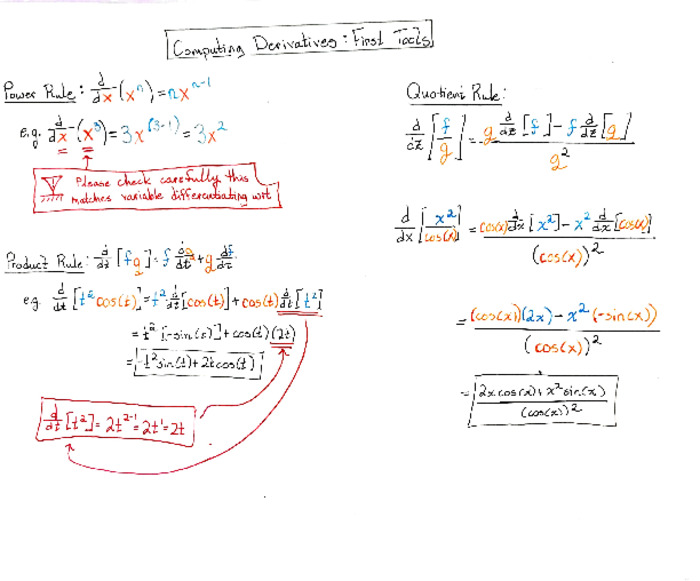 Computing Derivatives: First Tools
Power Rule: d/dx (x^n) = nx^(n-1)
e.g. d/dx (x^3) = 3x^(3-1) = 3x^2
! Please check carefully this
matches variable differentiating wrt
Product Rule: d/dt [fg] = f dg/dt + g df/dt
e.g. d/dt [t^2 cos(t)] = t^2 d/dt [cos(t)] + cos(t) d/dt [t^2]
= t^2 [-sin(t)] + cos(t) (2t)
= -t^2 sin(t) + 2t cos(t)
d/dt [t^2] = 2t^(2-1) = 2t^1 = 2t
Quotient Rule:
d/dz [f/g] = (g d/dz [f] - f d/dz [g]) / g^2
d/dx [x^2/cos(x)] = (cos(x) d/dx [x^2] - x^2 d/dx [cos(x)]) / (cos(x))^2
= ((cos(x))(2x) - x^2 (-sin(x))) / (cos(x))^2
= (2x cos(x) + x^2 sin(x)) / (cos(x))^2